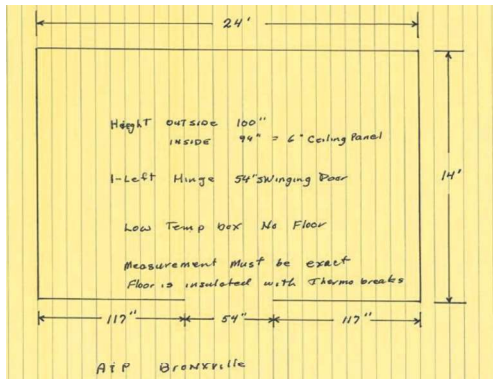 24'
Height OUTSIDE 100"
INSIDE 94" = 6" Ceiling Panel
1-Left Hinge 54" SWinging Door
14'
Low Temp box No Floor
Measurement Must be exact
Floor is insulated with Thermo breaks
117" 54" 117"
A+P Bronxville